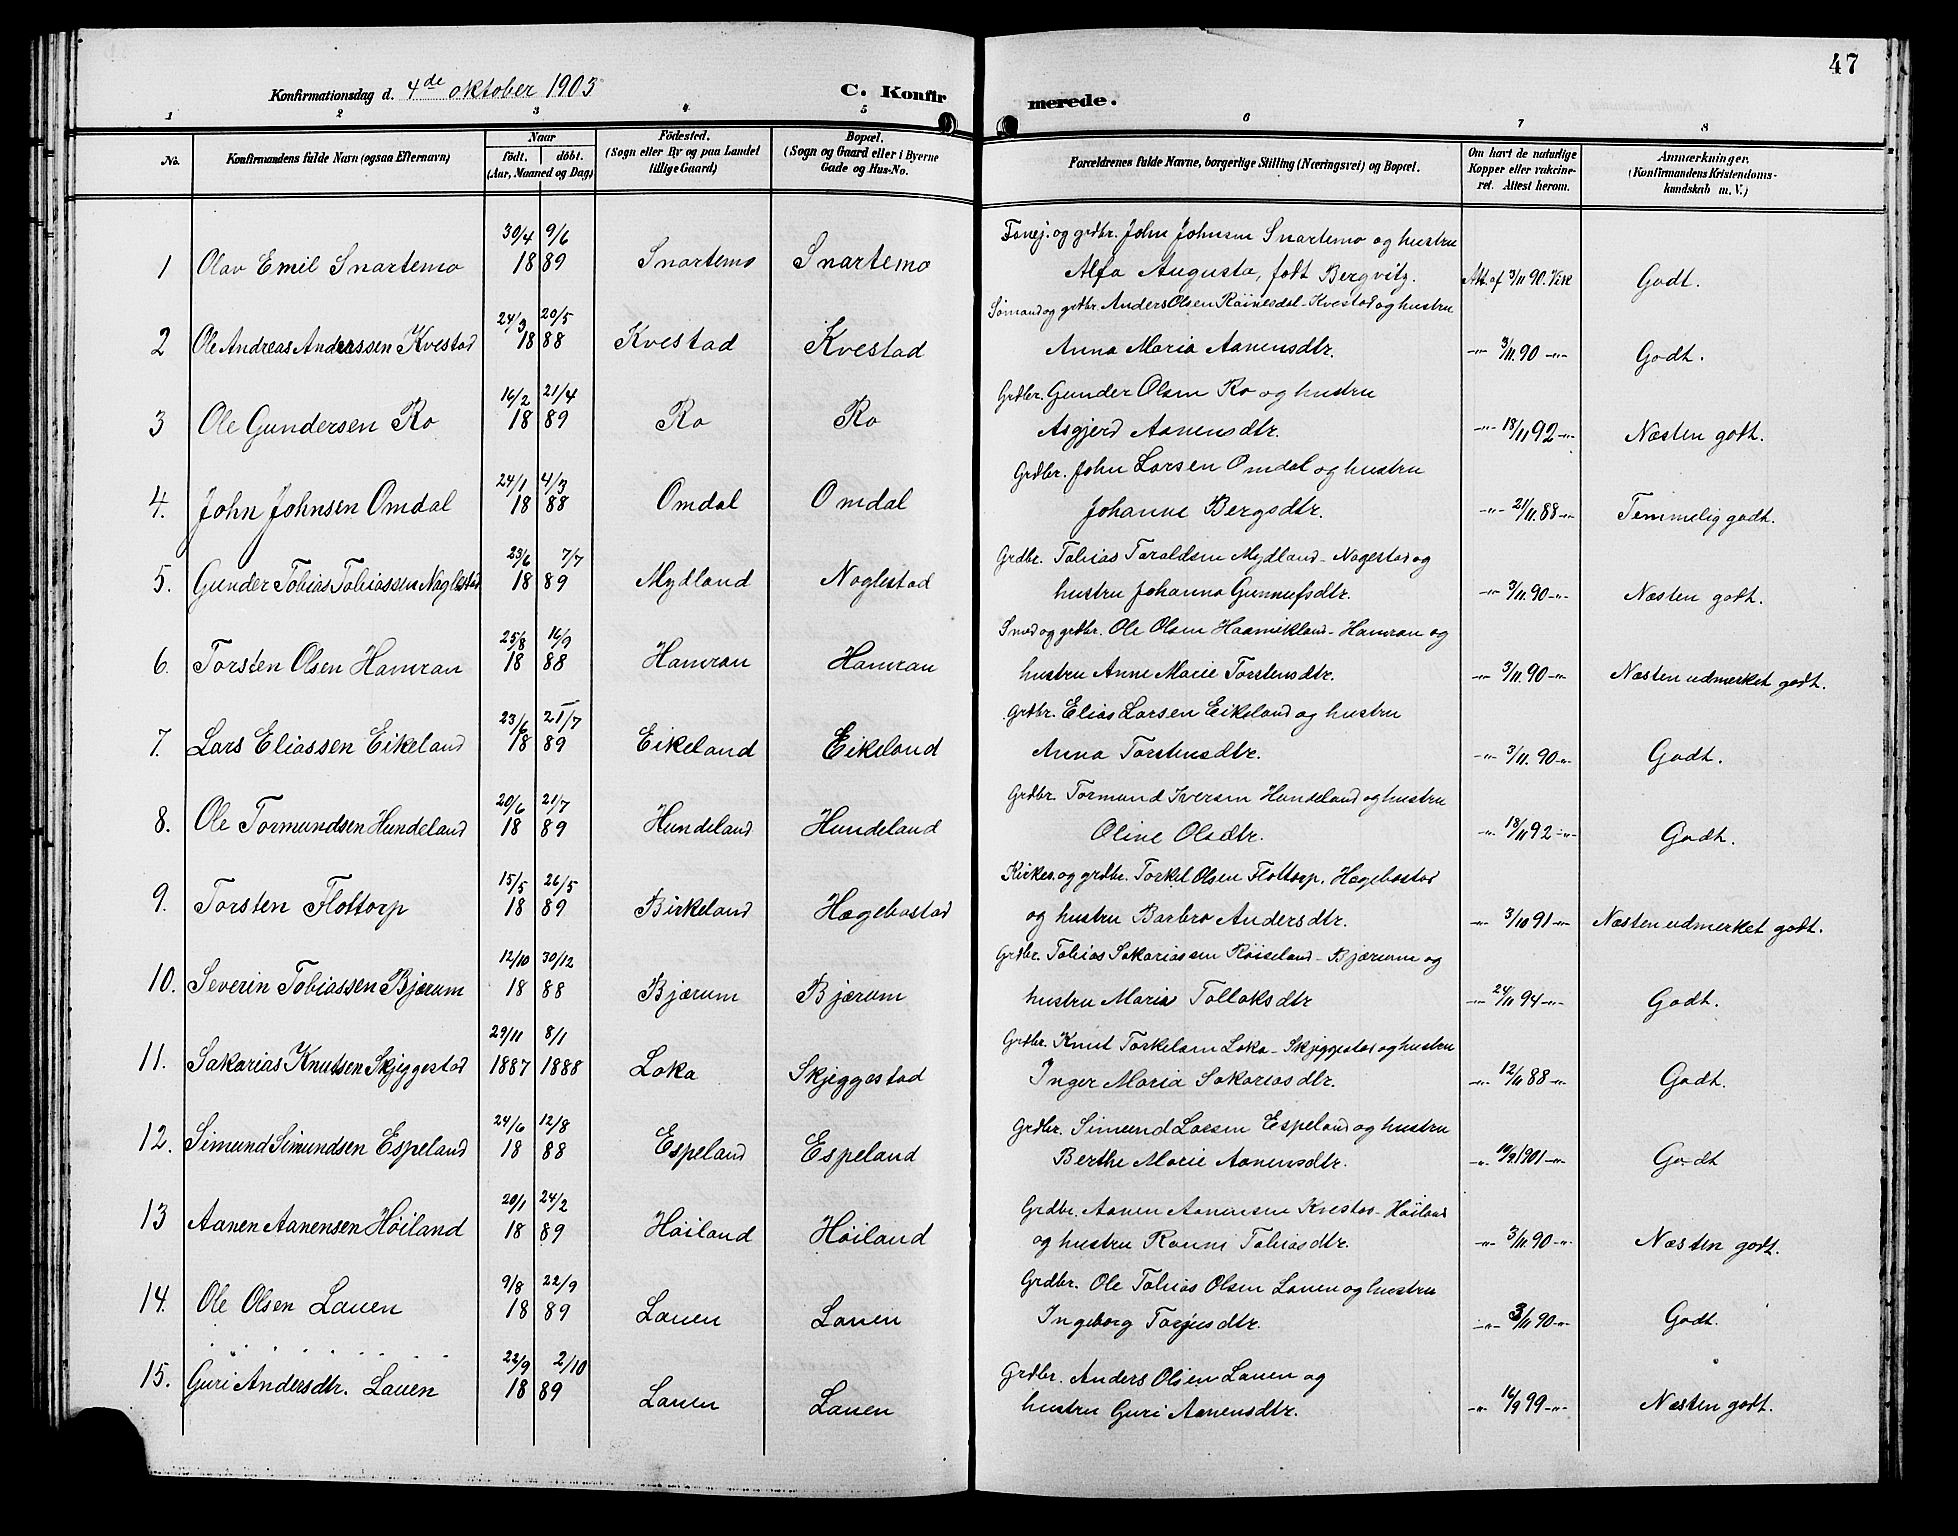 47
Konfirmationsdag d. 4de oktober 1903
C. Konfirmerede.
1 2 3 4 5 6 7 8
No.
Konfirmandens fulde Navn (ogsaa Efternavn)
Naar
födt. döbt.
(Aar, Maaned og Dag)
Födested.
(Sogn eller By og paa Landet
tillige Gaard)
Bopæl.
(Sogn og Gaard eller i Byerne
Gade og Hus-No.
Forældrenes fulde Navne, borgerlige Stilling (Næringsvei) og Bopæl.
Om havt de naturlige
Kopper eller vakcine-
ret. Attest herom.
Anmærkninger.
(Konfirmandens Kristendoms-
kundskab m. V.)
30/4 9/6 og grdbr. John Johnsen Snartemo og hustru
1 Olav Emil Snartemo 18 89 Snartemo Snartemo Alfa Augusta, født Bergvitz. Att. af 3/11 90. Godt.
24/3 20/5 Sömand og grdbr. Anders Olsen Röinesdal-Kvestad og hustru
2 Ole Andreas Anderssen Kvestad 18 88 Kvestad Kvestad Anna Maria Aanensdtr. -"- 3/11. 90 -"- Godt.
16/2 21/4 Grdbr. Gunder Olsen Ro og hustru
3 Ole Gundersen Ro 18 89 Ro Ro Asgjerd Aanensdtr. -"- 18/11 92 -"- Næsten godt.
24/1 4/3 Grdbr. John Larsen Omdal og hustru
4. John Johnsen Omdal 18 88 Omdal Omdal Johanne Bergsdtr. -"- 2/11. 88 -"- Temmelig godt.
23/6 7/7 Grdbr. Tobias Taraldsen Mydland-Nagestad og
5. Gunder Tobias Tobiassen Naglestad 18 89 Mydland Naglestad hustru Johanna Gunnufsdtr. -"- 3/11. 90 -"- Næsten godt.
25/8 16/9 Smed og grdbr. Ole Olsen Haamikland-Hamran og
6. Torsten Olsen Hamran 18 88 Hamran Hamran hustru Anne Marie Torstensdtr. -"- 3/11. 90 -"- Næsten udmerket godt.
23/6 21/7 Grdbr. Elias Larsen Eikeland og hustru
7. Lars Eliassen Eikeland 18 89 Eikeland Eikeland Anna Torstensdtr. -"- 3/11. 90 -"- Godt.
20/6 21/7 Grdbr. Tormund Iversen Hundeland og hustru
8. Ole Tormundsen Hundeland 18 89 Hundeland Hundeland Oline Olsdtr. -"- 18/11 92 -"- Godt.
15/5 26/5 Kirkes. og grdbr. Torkel Olsen Flottorp, Hægebostad
9. Torsten Flottorp 18 89 Birkeland Hægebostad og hustru Barbro Andersdtr. -"- 3/10 91 -"- Næsten udmerket godt.
12/10 30/12 Grdbr. Tobias Sakariassen Röiseland-Bjærum og
10. Severin Tobiassen Bjærum 18 88 Bjærum Bjærum hustru Maria Tolloksdtr -"- 24/11 94 -"- Godt.
29/11 8/1 Grdbr. Knut Torkelsen Loka-Skjeggestad og hustru
11. Sakarias Knutsen Skjeggestad 1887 1888 Loka Skjeggestad Inger Maria Sakariasdtr. -"- 12/11 88 -"- Godt.
24/6 12/8 Grdbr. Simund Larsen Espeland og hustru
12. Simund Simundsen Espeland 18 88 Espeland Espeland Berthe Marie Aanensdtr. -"- 10/9 1901 -"- Godt
20/1 24/2 Grdbr. Aanen Aanensen Kvestad-Höiland
13 Aanen Aanensen Höiland 18 89 Höiland Höiland og hustru Ranni Tobiasdtr. -"- 3/11. 90 -"- Næsten godt.
9/8 22/9 Grdbr. Ole Tobias Olsen Lauen og hustru
14. Ole Olsen Lauen 18 89 Lauen Lauen Ingeborg Torjusdtr. -"- 3/11 90 -"- Godt.
22/9 2/10 Grdbr. Anders Olsen Lauen og
15. Guri Andersdtr. Lauen 18 89 Lauen Lauen hustru Guri Aanensdtr. -"- 16/9 99 -"- Næsten godt.